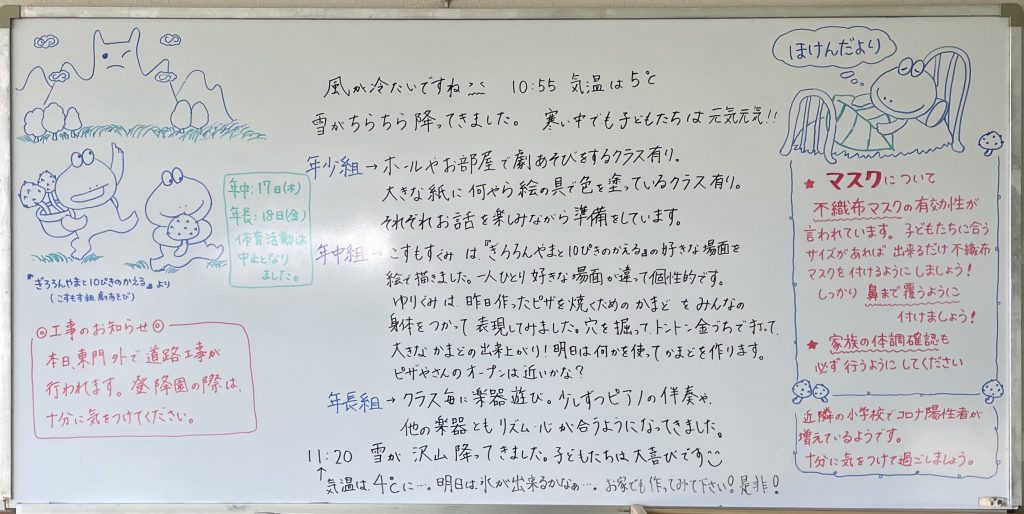 風が冷たいですね 10:55 気温は5℃
雪がちらちら降ってきました。 寒い中でも子どもたちは元気元気!!
年少組→ホールやお部屋で劇あそびをするクラス有り。
大きな紙に何やら絵の具で色を塗っているクラス有り。
それぞれお話を楽しみながら準備をしています。
年中組→こすもすぐみは『ぎろろんやまと10ぴきのかえる』の好きな場面を
絵で描きました。一人ひとり好きな場面が違って個性的です。
ゆりぐみは、昨日作ったピザを焼くためのかまどをみんなの
身体をつかって表現してみました。穴を掘って、トントン金づちで打って、
大きなかまどの出来上がり!明日は何かを使ってかまどを作ります。
ピザやさんのオープンは近いかな?
年長組→クラス毎に楽器遊び。少しずつピアノの伴奏や、
他の楽器ともリズム・心が合うようになってきました。
11:20 雪が沢山降ってきました。子どもたちは大喜びです
↑気温は、4℃に…。明日は氷が出来るかなぁ…。お家でも作ってみて下さい!是非!
年中:17日(木)
年長:18日(金)
体育活動は
中止となり
ました。
『ぎろろんやまと10ぴきのかえる』より
(こすもす組 劇あそび)
◎工事のお知らせ◎
本日、東門外で道路工事が
行われます。登降園の際は、
十分に気をつけてください。
ほけんだより
★マスクについて
不織布マスクの有効性が
言われています。子どもたちに合う
サイズがあれば出来るだけ不織布
マスクを付けるようにしましょう!
しっかり鼻まで覆うように
付けましょう!
★家族の体調確認も
必ず行うようにしてください
近隣の小学校でコロナ陽性者が
増えているようです。
十分に気をつけて過ごしましょう。